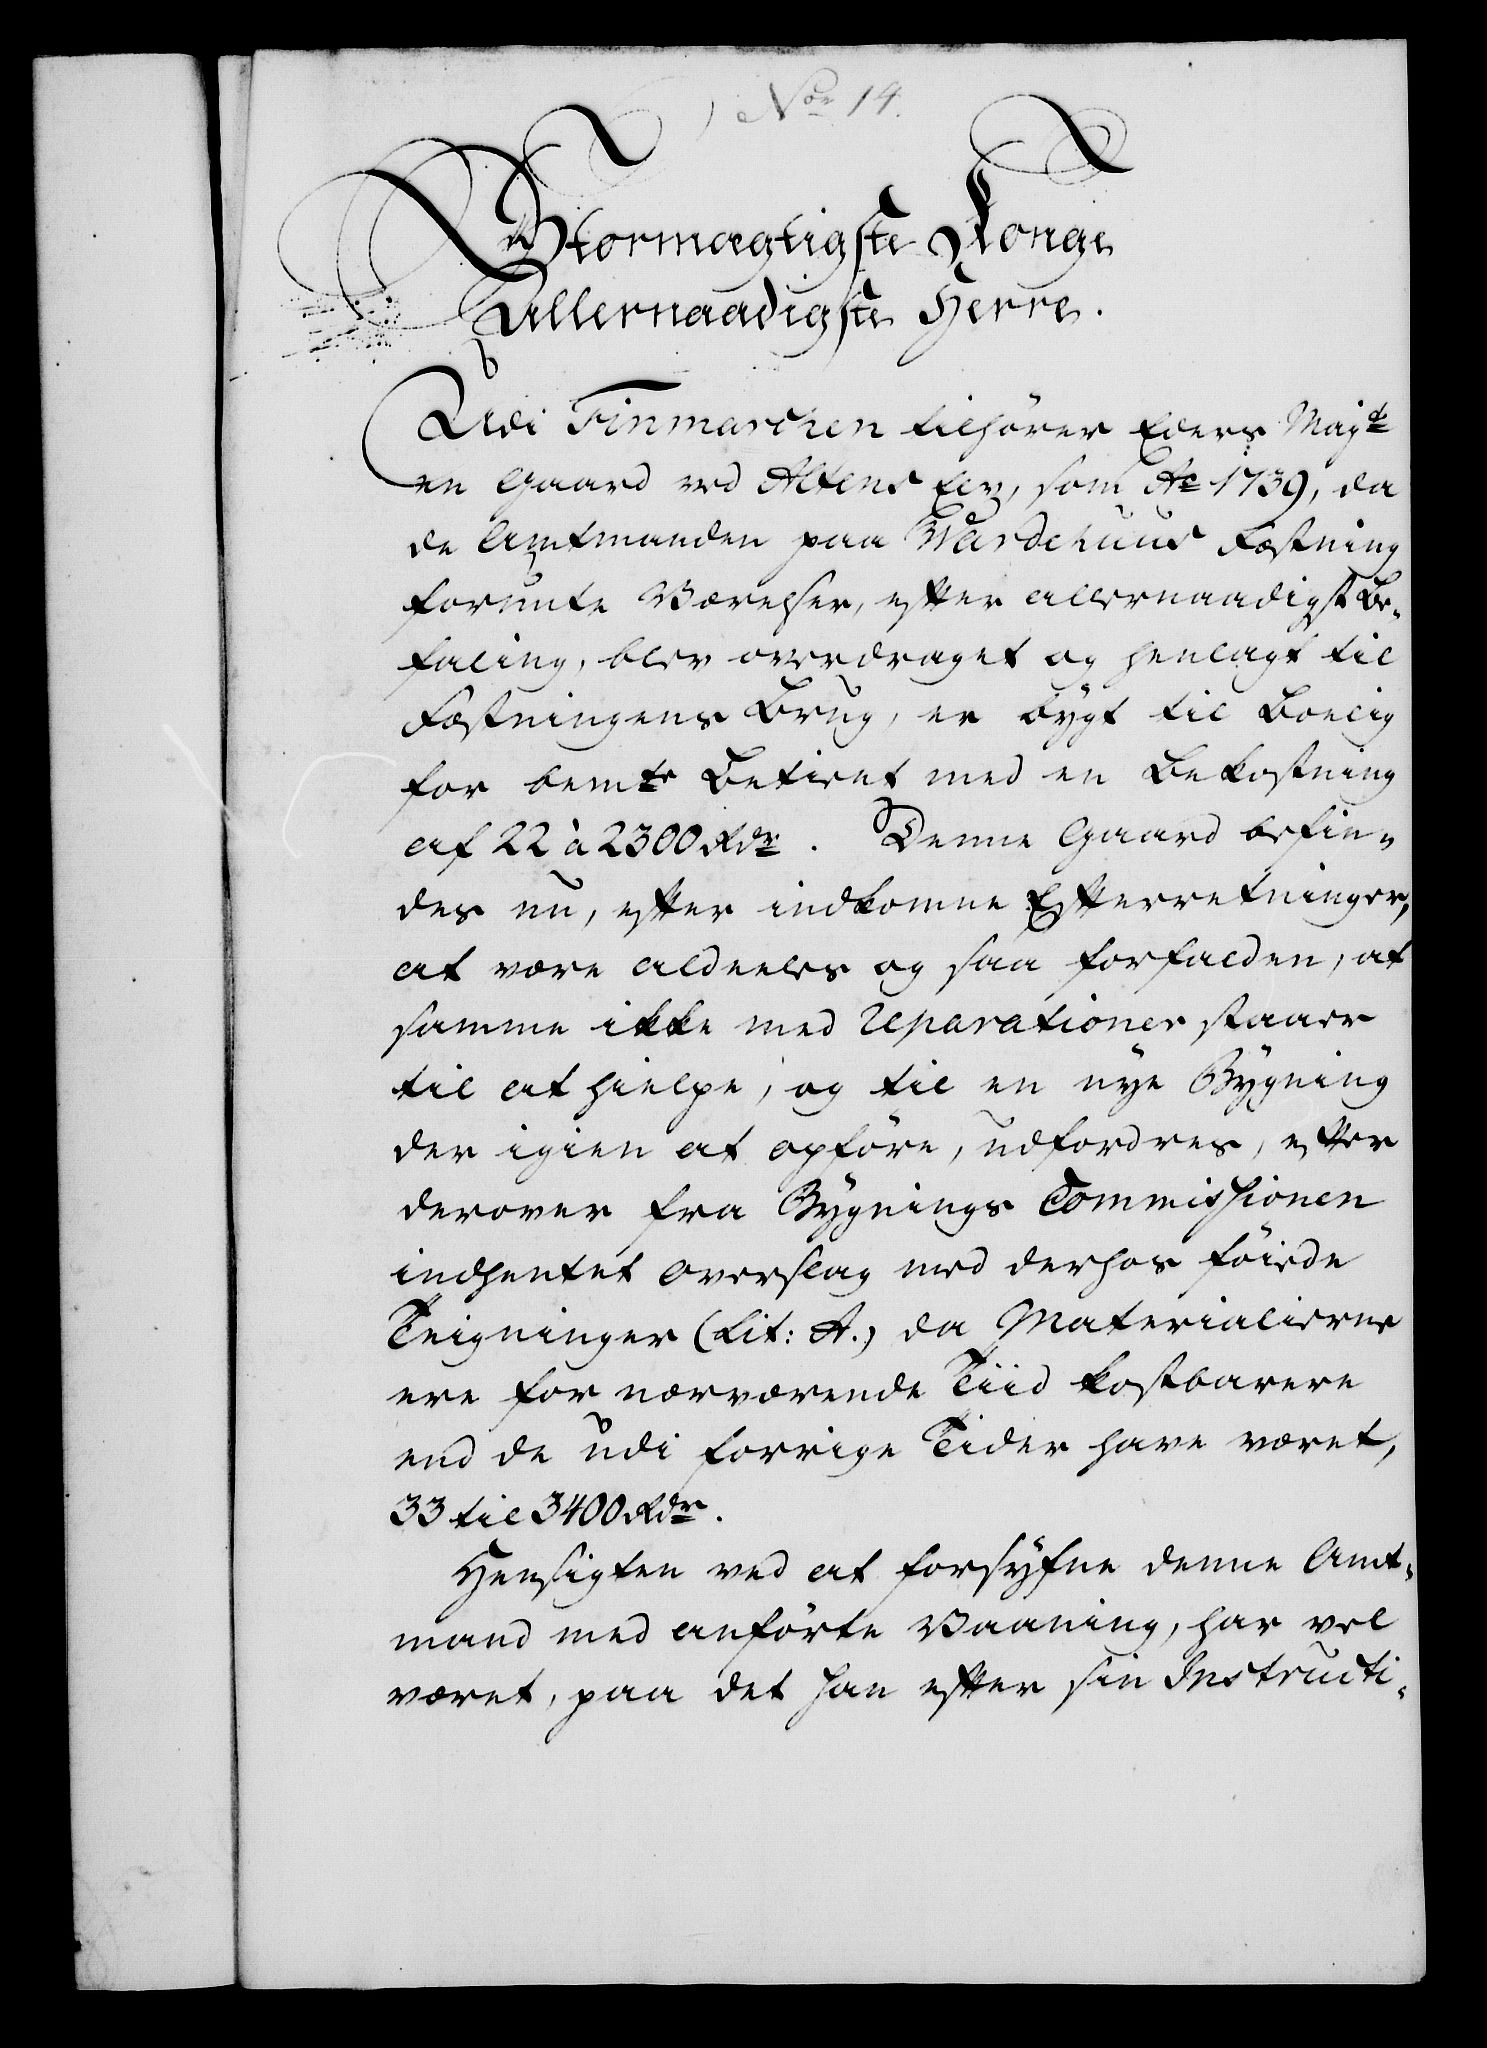 Nor 14.
Stormægtigste Konge
Allernaadigste Herre.
Udi Finmarchen tilhører Eders Majt
en Gaard ved Altens Elv, som Ao 1739, da
de Amtmanden paa Wardehuus Fæstning
forunte Værelser, efter allernaadigst Be-
faling, blev overdraget og henlagt til
Fæstningens Brug, er bygt til Boelig
for bemte Betient med en Bekostning
af 22 à 2300 Rdr. Denne Gaard befin-
des nu, efter indkomne Efterretninger,
at være aldeeles og saa forfalden, at
samme ikke med reparationer staaer
til at hielpe, og til en nye Bygning
der igien at opføre, udfordres, efter
derover fra Bygnings Commissionen
indhentet Overslag med derhos føiede
Teigninger (Lit: A.) da Materialierne
ere for nærværende Tiid kostbarere
end de udi forrige Tider have været,
33 til 3400 Rdr.
Hensigten ved at forsyfne denne Amt-
mand med anførte Vaaning, har vel
været, paa det han efter sin Instructi-